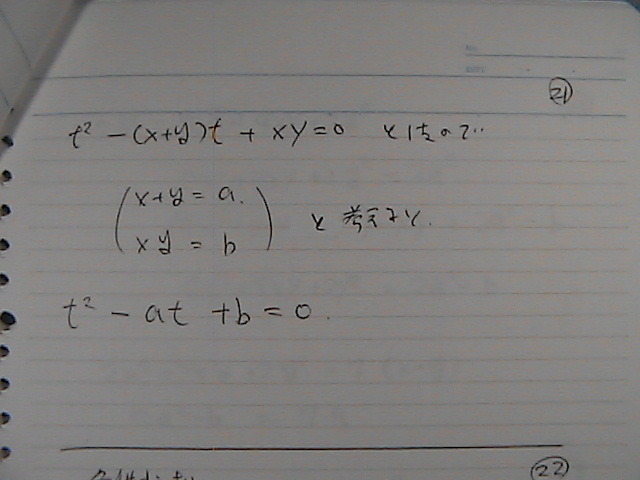 No.
DATE
㉑
t² - (x+y)t + xy = 0 となるので..
x+y = a.
xy = b
と考えると.
t² - at + b = 0.
㉒